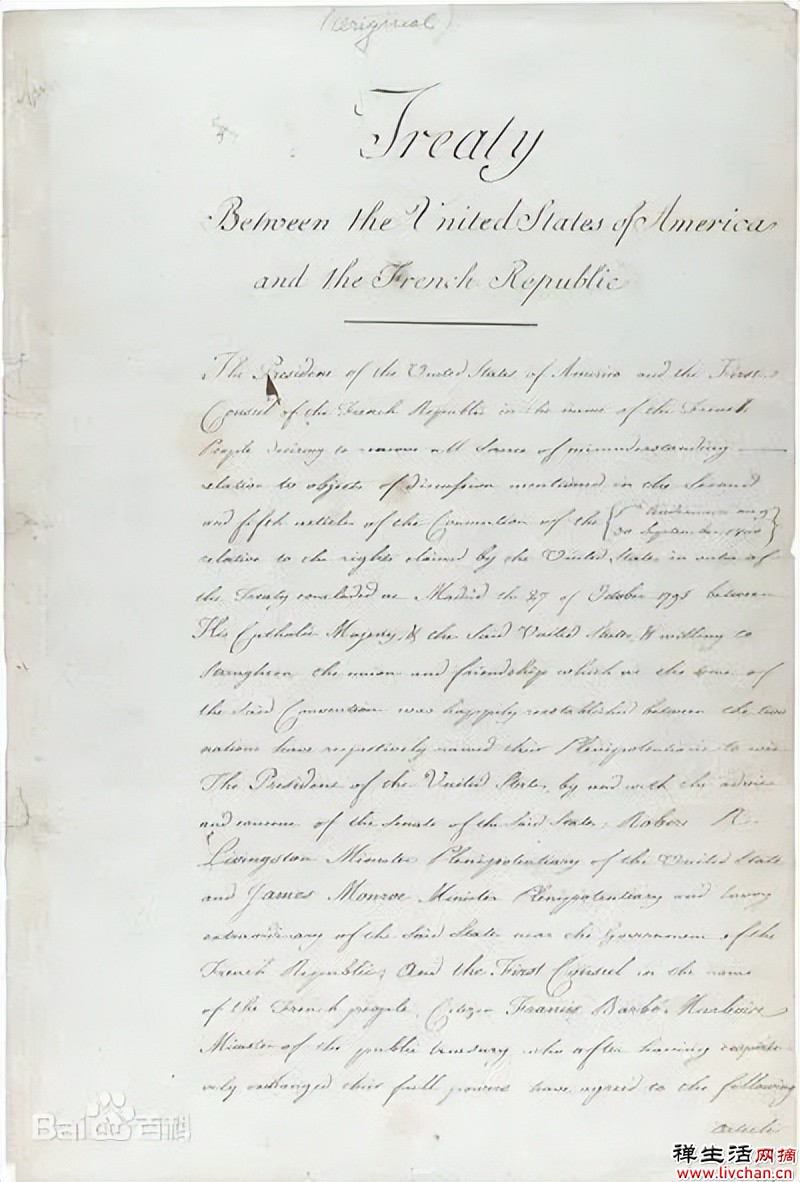 (Original)
Treaty
Between the United States of America
and the French Republic
The President of the United States of America and the First
Consul of the French Republic in the name of the French
People desiring to remove all Source of misunderstanding
relative to objects of discussion mentioned in the Second
and fifth articles of the Convention of the
30 September 1800
relative to the rights claimed by the United States in virtue of
the Treaty concluded at Madrid the 27 of October 1795 between
His Catholic Majesty, & the Said United States, & willing to
Strengthen the union and friendship which at the time of
the Said Convention was happily reestablished between the two
nations have respectively named their Plenipotentiaries to wit
The President of the United States, by and with the advice
and consent of the Senate of the Said States; Robert R.
Livingston Minister Plenipotentiary of the United States
and James Monroe Minister Plenipotentiary and Envoy
extraordinary of the Said States near the Government of the
French Republic; And the First Consul in the name
of the French people, Citizen Francis Barbé Marbois
Minister of the public treasury who after having respecti
vely exchanged their full powers have agreed to the following
article
Bai百科
禅生活网摘
www.livchan.cn